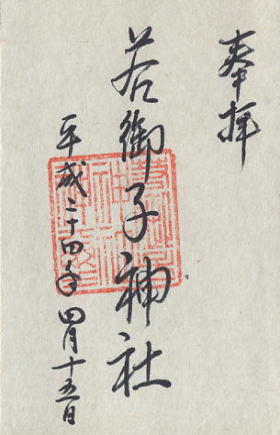 奉拝
若御子神社
平成二十四年四月十五日